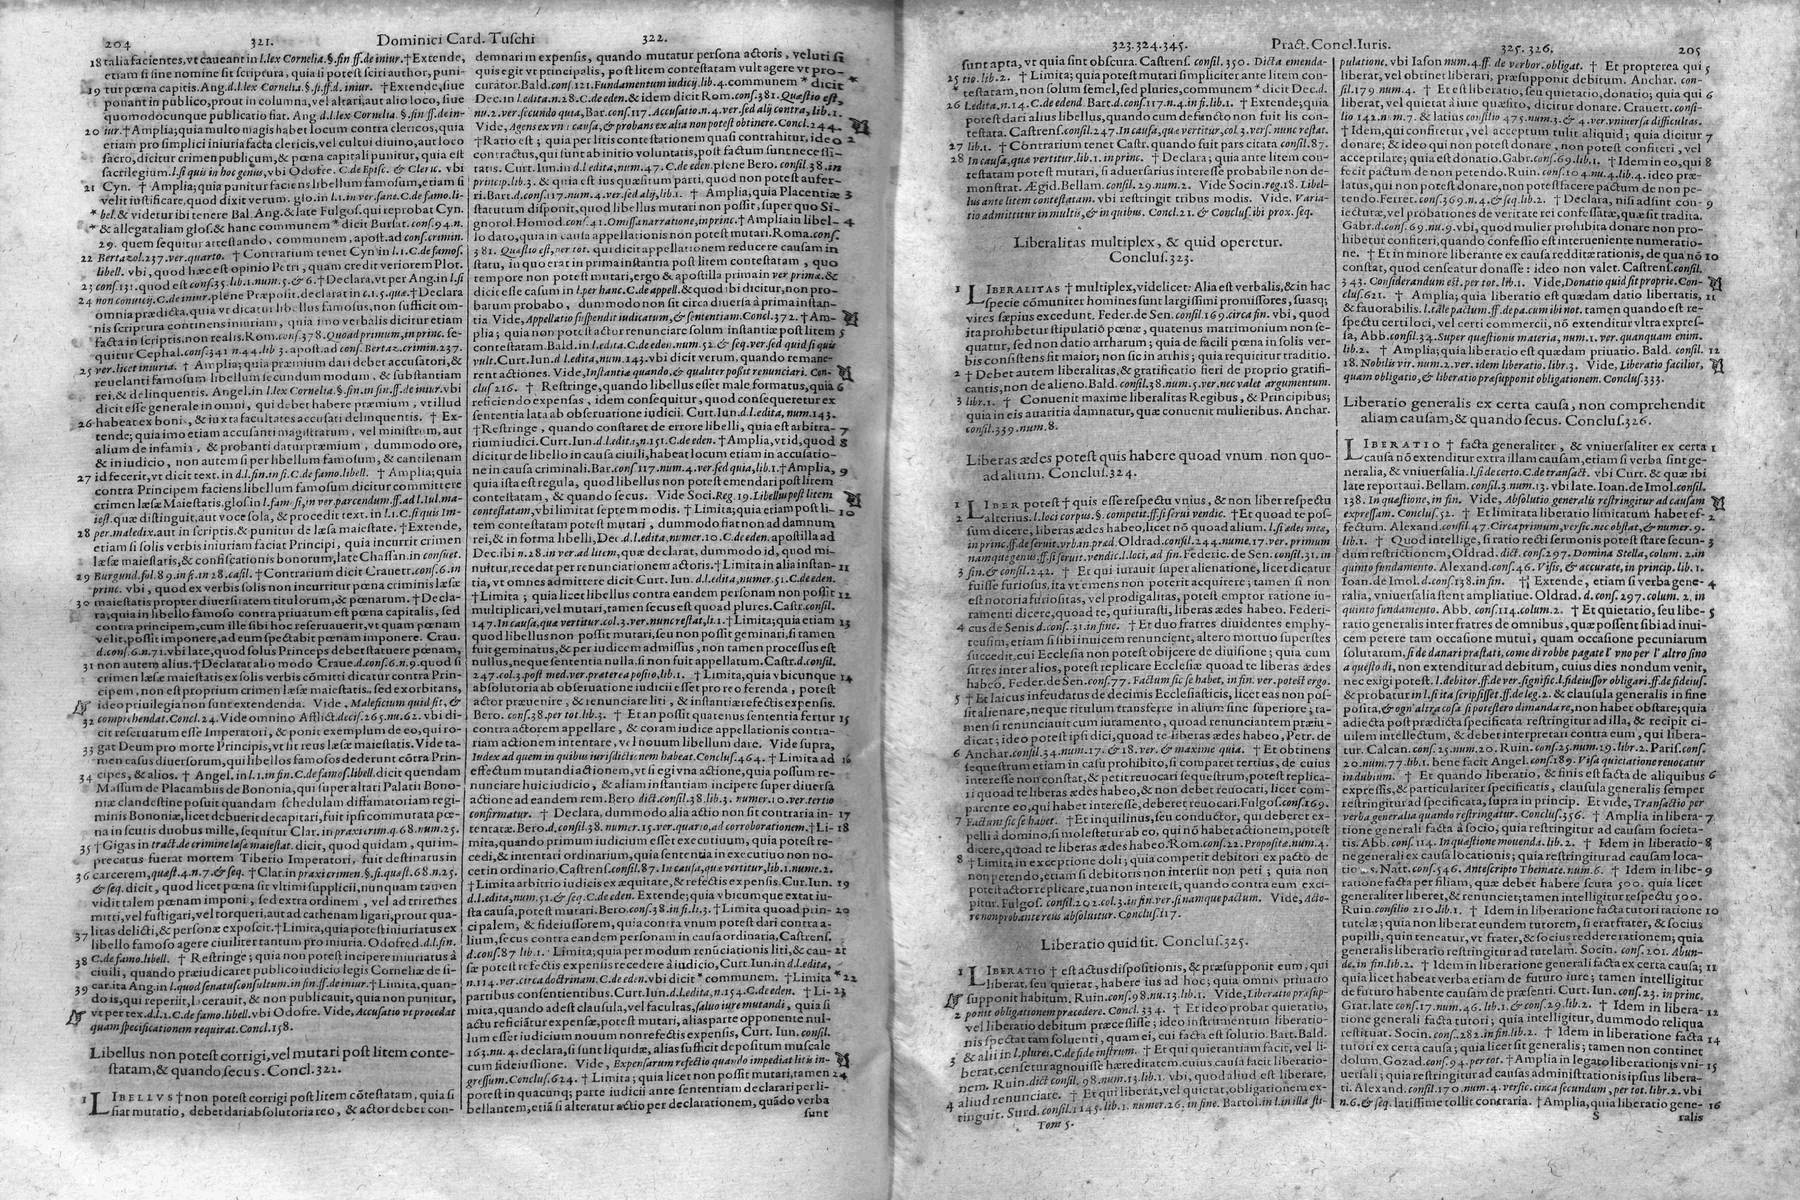 204 321. Dominici Card. Tuschi 322.
18 talia facientes, vt caueant in l.lex Cornelia.§.fin ff.de iniur. †Extende,
etiam si sine nomine sit scriptura, quia si potest sciri author, puni-
19 tur pœna capitis. Ang.d.l.lex Cornelia.§.si.ff.d. iniur. †Extende, siue
ponant in publico, prout in columna, vel altari, aut alio loco, siue
quomodocunque publicatio fiat. Ang d.l.lex Cornelia. §.fin ff.de in-
20 iur. †Amplia; quia multo magis habet locum contra clericos, quia
etiam pro simplici iniuria facta clericis, vel cultui diuino, aut loco
sacro, dicitur crimen publicum, & pœna capitali punitur, quia est
sacrilegium. l.si quis in hoc genus, vbi Odofre. C.de Episc. & Cleric. vbi
21 Cyn. † Amplia; quia punitur faciens libellum famosum, etiam si
velit iustificare, quod dixit verum. glo.in l.1.in ver.sane.C.de famo.li-
* bel. & videtur ibi tenere Bal. Ang.& late Fulgos. qui reprobat Cyn.
* & allegat aliam glos.& hanc communem * dicit Bursat. cons.94.n.
29. quem sequitur attestando, communem, apost.ad cons.crimin.
22 Bertazol.237.ver.quarto. † Contrarium tenet Cyn in l.1.C.de famos.
libell. vbi, quod hæc est opinio Petri, quam credit veriorem Plot.
23 cons.131. quod est cons.35.lib.1.num.5.& 6. †Declara, vt per Ang.in l.si
24 non conuicij.C.de iniur. plene Præposit. declarat in c.1.5.quæ. †Declara
omnia prædicta, quia vt dicatur libellus famosus, non sufficit om-
nis scriptura continens iniuriam, quia imo verbalis dicitur etiam
facta in scriptis, non realis. Rom.cons.378. Quoad primum, in princ. se-
quitur Cephal.cons.341 n.44.lib 3. apost.ad cons.Bertaz.crimin.237.
25 ver.licet iniuria. † Amplia; quia præmium dari debet accusatori, &
reuelanti famosum libellum secundum modum, & substantiam
rei, & delinquentis. Angel.in l.lex Cornelia.§.fin.in fin.ff.de iniur.vbi
dicit esse generale in omni, qui debet habere præmium, vt illud
26 habeat ex bonis, & iuxta facultates accusati delinquentis. † Ex-
tende; quia imo etiam accusanti magistratum, vel ministrum, aut
alium de infamia, & probanti datur præmium, dummodo ore,
& in iudicio, non autem si per libellum famosum, & cantilenam
27 id fecerit, vt dicit text. in d.l.fin.in fi.C.de famo.libell. † Amplia; quia
contra Principem faciens libellum famosum dicitur committere
crimen læsæ Maiestatis, glos.in l.fam.si, in ver.parcendum.ff.ad l.iul.ma-
iest. quæ distinguit, aut voce sola, & procedit text. in l.1.C.si quis Im-
28 per.maledix. aut in scriptis. & punitur de læsa maiestate. †Extende,
etiam si solis verbis iniuriam faciat Principi, quia incurrit crimen
læsæ Maiestatis, & confiscationis bonorum, late Chassan.in consuet.
29 Burgund.fol.89.in fi.in 28.casil. †Contrarium dicit Crauett.cons.6.in
princ. vbi, quod ex verbis solis non incurritur pœna criminis læsæ
30 maiestatis propter diuersitatem titulorum, & pœnarum. †Decla-
ra; quia in libello famoso contra priuatum est pœna capitalis, sed
contra principem, cum ille sibi hoc reseruauerit, vt quam pœnam
velit, possit imponere, ad eum spectabit pœnam imponere. Crau.
d.cons.6.n.71.vbi late, quod solus Princeps debet statuere pœnam,
31 non autem alius. †Declarat alio modo Craue.d.cons.6.n.9.quod si
crimen læsæ maiestatis ex solis verbis cōmitti dicatur contra Prin-
cipem, non est proprium crimen læsæ maiestatis. sed exorbitans,
ideo priuilegia non sunt extendenda. Vide, Maleficium quid sit, &
32 comprehendat.Concl.24. Vide omnino Afflict.decis.265.nu.62. vbi di-
cit reseruatum esse Imperatori, & ponit exemplum de eo, qui ro-
33 gat Deum pro morte Principis, vt sit reus læsæ maiestatis. Vide ta-
men casus diuersorum, qui libellos famosos dederunt cōtra Prin-
34 cipes, & alios. † Angel.in l.1.in fin.C.de famos.libell. dicit quendam
Massum de Placambiis de Bononia, qui super altari Palatii Bono-
niæ clandestine posuit quandam schedulam diffamatoriam regi-
minis Bononiæ, licet debuerit decapitari, fuit ipsi commutata pœ-
na in scutis duobus mille, sequitur Clar. in praxi crim.q.68.num.25.
35 † Gigas in tract.de crimine læsæ maiestat. dicit, quod quidam, qui im-
precatus fuerat mortem Tiberio Imperatori, fuit destinatus in
36 carcerem, quæst.4.n.7.& seq. †Clar.in praxi crimen.§.fi.quæst.68.n.25.
& seq. dicit, quod licet pœna sit vltimi supplicii, nunquam tamen
vidit talem pœnam imponi, sed extra ordinem, vel ad triremes
mitti, vel fustigari, vel torqueri, aut ad cathenam ligari, prout qua-
37 litas delicti, & personæ exposcit. †Limita, quia potest iniuriatus ex
libello famoso agere ciuiliter tantum pro iniuria. Odofred.d.l.fin.
38 C.de famo.libell. † Restringe; quia non potest incipere iniuriatus à
ciuili, quando præiudicaret publico iudicio legis Corneliæ de si-
39 car.ita Ang.in l.quod senatusconsultum.in fin.ff.de iniur. †Limita, quan-
do is, qui reperiit, lacerauit, & non publicauit, quia non punitur,
vt per tex.d.l.1.C.de famo.libell.vbi Odofre. Vide, Accusatio vt procedat
quam specificationem requirat.Concl.158.
Libellus non potest corrigi, vel mutari post litem conte-
statam, & quando secus. Concl.322.
1 LIBELLVS †non potest corrigi post litem cōtestatam, quia si
fiat mutatio, debet dari absolutoria reo, & actor debet con-
demnari in expensis, quando mutatur persona actoris, veluti si
quis egit vt principalis, post litem contestatam vult agere vt pro-
curator.Bald.cons.121.Fundamentum iudicij.lib.4.communem * dicit
Dec. in l.edita.n.28.C.de eden.& idem dicit Rom.cons.381.Quæstio est,
nu.2.ver.secundo quia, Bar.cons.117.Accusatio.n.4.ver.sed alij contra, lib.1.
Vide, Agens ex vna causa, & probans ex alia non potest obtinere.Concl.244.
†Ratio est; quia per litis contestationem quasi contrahitur, ideo 2
contractus, qui sunt ab initio voluntatis, post factum sunt necessi-
tatis. Curt.Iun.in d.l.edita, num.47.C.de eden.plene Bero.consil.38.in
princip.lib.3. & quia est ius quæsitum parti, quod non potest aufer-
ri. Bart.d.cons.117.num.4.ver.sed alij, lib.1. † Amplia, quia Placentiæ 3
statutum disponit, quod libellus mutari non possit, super quo Si-
gnorol.Homod.cons.41.Omissa narratione, in princ. †Amplia in libel- 4
lo dato, quia in causa appellationis non potest mutari.Roma.cons.
381. Quæstio est, per tot. qui dicit appellationem reducere causam in
statu, in quo erat in prima instantia post litem contestatam, quo
tempore non potest mutari, ergo & apostilla prima in ver prima.&
dicit esse casum in l.per hanc.C.de appell.& quod ibi dicitur, non pro-
batum probabo, dummodo non sit circa diuersa à prima instan-
tia. Vide, Appellatio suspendit iudicatum, & sententiam.Concl.372. †Am-
plia; quia non potest actor renunciare solum instantiæ post litem 5
contestatam. Bald.in l.edita.C.de eden.num.52 & seq.ver.sed quid si quis
vult. Curt.Iun.d l.edita, num.143.vbi dicit verum, quando remane-
rent actiones. Vide, Instantiæ quando, & qualiter possit renunciari. Con-
clus.216. † Restringe, quando libellus esset male formatus, quia 6
reficiendo expensas, idem consequitur, quod consequeretur ex
sententia lata ab obseruatione iudicii. Curt.Iun.d.l.edita, num.143.
†Restringe, quando constaret de errore libelli, quia est arbitra- 7
rium iudici. Curt.Iun.d.l.edita, n.151.C.de eden. †Amplia, vt id, quod 8
dicitur de libello in causa ciuili, habeat locum etiam in accusatio-
ne in causa criminali.Bar.cons 117.num.4.ver.sed quia, lib.1. †Amplia, 9
quia ista est regula, quod libellus non potest emendari post litem
contestatam, & quando secus. Vide Soci.Reg.19.Libellus post litem
contestatam, vbi limitat septem modis. † Limita; quia etiam post li- 10
tem contestatam potest mutari, dummodo fiat non ad damnum
rei, & in forma libelli, Dec.d.l.edita, num.10.C.de eden.apostilla ad
Dec.ibi n.28.in ver.ad litem, quæ declarat, dummodo id, quod mi-
nuitur, recedat per renunciationem actoris. †Limita in alia instan- 11
tia, vt omnes admittere dicit Curt. Iun. d.l.edita, num.51.C.de eden.
†Limita; quia licet libellus contra eandem personam non possit 12
multiplicari, vel mutari, tamen secus est quoad plures. Castr.consil.
147.In causa, quæ vertitur.col.3.ver.nunc restat, li.1. †Limita; quia etiam 13
quod libellus non possit mutari, seu non possit geminari, si tamen
fuit geminatus, & per iudicem admissus, non tamen processus est
nullus, neque sententia nulla. si non fuit appellatum. Castr.d.consil.
247.col.3.post med.ver.præterea posito, lib.1. † Limita, quia vbicunque 14
absolutoria ab obseruatione iudicii esset pro reo ferenda, potest
actor præuenire, & renunciare liti, & instantiæ refectis expensis.
Bero. cons.38.per tot.lib.3. † Et an possit quatenus sententia fertur 15
contra actorem appellare, & coram iudice appellationis contra-
riam actionem intentare, vel nouum libellum dare. Vide supra,
Index ad quem in quibus iurisdictionem habeat.Conclus.464. †Limita ad 16
effectum mutandi actionem, vt si egi vna actione, quia possum re-
nunciare huic iudicio, & aliam instantiam incipere super diuersa
actione ad eandem rem. Bero dict.consil.38.lib.3. numer.10.ver.tertio
confirmatur. † Declara, dummodo alia actio non sit contraria in- 17
tentatæ. Bero.d.consil.38. numer.15.ver.quarto, ad corroborationem. †Li- 18
mita, quando primum iudicium esset executiuum, quia potest re-
cedi, & intentari ordinarium, quia sententia in executiuo non no-
cet in ordinario. Castrens.consil.87. In causa, quæ vertitur, lib.1.nume.2.
†Limita arbitrio iudicis ex æquitate, & refectis expensis. Cur.Iun. 19
d.l.edita, num.51.& seq.C.de eden. Extende; quia vbicumque extat iu-
sta causa, potest mutari. Bero.cons.38.in fi.li.3. †Limita quoad prin- 20
cipalem, & fideiussorem, quia contra vnum potest dari contra a-
lium, secus contra eandem personam in causa ordinaria, Castrens.
d.cons.87 lib.1. Limita; quia per modum renūciationis liti, & cau- 21
sæ potest refectis expensis recedere à iudicio, Curt.Iun.in d.l.edita,
n.114.ver.circa doctrinam.C.de eden.vbi dicit * communem. †Limita *22
partibus consentientibus. Curt.Iun.d.l.edita, n.154.C.de eden. † Li- 23
mita, quando adest clausula, vel facultas, saluo iure mutandi, quia si
actu reficiātur expensæ, potest mutari, alias parte opponente nul-
lum esset iudicium nouum non refectis expensis, Curt. Iun. consil.
163.nu.4. declara, si sunt liquidæ, alias sufficit depositum muscale
cum fideiussione. Vide, Expensarum refectio quando impediat litis in-
gressum.Conclus.624. † Limita; quia licet non possit mutari, tamen 24
potest in quacunq; parte instantiæ ante sententiam declarari per li-
bellantem, etiā si alteratur actio per declarationem, quādo verba
sunt
323.324.345. Pract. Concl. Iuris. 325. 326. 205
sunt apta, vt quia sint obscura. Castrens. consil.350. Dicta emenda-
25 tio.lib.2. † Limita; quia potest mutari simpliciter ante litem con-
* testatam, non solum semel, sed pluries, communem * dicit Dec.d.
26 l.edita.n.14.C.de edend. Bart.d.cons.117.n.4.in fi.lib.1. † Extende; quia
potest dari alius libellus, quando cum defuncto non fuit lis con-
testata. Castrens.consil.247.In causa, quæ vertitur, col.3.vers. nunc restat.
27 lib.1. † Contrarium tenet Castr. quando fuit pars citata consil.87.
28 In causa, quæ vertitur, lib.1.in princ. † Declara; quia ante litem con-
testatam potest mutari, si aduersarius interesse probabile non de-
monstrat. Ægid.Bellam.consil.29.num.2. Vide Socin.reg.18. Libel-
lus ante litem contestatam. vbi restringit tribus modis. Vide, Varia-
tio admittitur in multis, & in quibus. Concl.21.& Conclus.ibi prox.seq.
Liberalitas multiplex, & quid operetur.
Conclus.323.
1 LIBERALITAS † multiplex, videlicet: Alia est verbalis, & in hac
specie cōmuniter homines sunt largissimi promissores, suasq;
vires sæpius excedunt. Feder.de Sen.consil.169.circa fin. vbi, quod
ita prohibetur stipulatiō pœnæ, quatenus matrimonium non se-
quatur, sed non datio arrharum; quia de facili pœna in solis ver-
bis consistens sit maior; non sic in arrhis; quia requiritur traditio.
2 † Debet autem liberalitas, & gratificatio fieri de proprio gratifi-
cantis, non de alieno. Bald.consil.38.num.5.ver.nec valet argumentum.
3 libr.1. † Conuenit maxime liberalitas Regibus, & Principibus;
quia in eis auaritia damnatur, quæ conuenit mulieribus. Anchar.
consil.339.num.8.
Liberas ædes potest quis habere quoad vnum, non quo-
ad alium. Conclus.324.
1 LIBER potest † quis esse respectu vnius, & non liber respectu
2 alterius. l.loci corpus.§.competit.ff.si serui vendic. † Et quoad te pos-
sum dicere, liberas ædes habeo, licet nō quoad alium. l.si ædes meæ,
in princ.ff.de seruit.vrb.in præd. Oldrad.consil.244.nume.17.ver. primum
namque genus.ff.si seruit.vendic.l.loci, ad fin. Federic.de Sen.consil.31.in
3 fin.& consil.242. † Et qui iurauit super alienatione, licet dicatur
fuisse furiosus, ita vt emens non poterit acquirere; tamen si non
est notoria furiositas, vel prodigalitas, potest emptor ratione iu-
ramenti dicere, quod te, qui iurasti, liberas ædes habeo. Federi-
4 cus de Senis d.cons.31.in fine. † Et duo fratres diuidentes emphy-
teusim, etiam si sibi inuicem renuncient, altero mortuo superstes
succedit, cui Ecclesia non potest obijcere de diuisione; quia cum
sit res inter alios, potest replicare Ecclesiæ quoad te liberas ædes
habeo. Feder.de Sen.cons.77. Factum sic se habet, in fin. ver. potest ergo.
5 † Et laicus infeudatus de decimis Ecclesiasticis, licet eas non pos-
sit alienare, neque titulum transferre in alium sine superiore; ta-
men si renunciant cum iuramento, quoad renunciantem præiu-
dicat; ideo potest ipsi dici, quoad te liberas ædes habeo, Petr. de
6 Anchar.consil.34.num.17. & 18.ver.& maxime quia. † Et obtinens
sequestrum etiam in casu prohibito, si comparet tertius, de cuius
interesse non constat, & petit reuocari sequestrum, potest replica-
ri quoad te liberas ædes habeo, & non debet reuocari, licet com-
parente eo, qui habet interesse, deberet reuocari. Fulgos.cons.169.
7 Factum sic se habet. †Et inquilinus, seu conductor, qui deberet ex-
pelli à domino, si molestetur ab eo, qui nō habet actionem, potest
dicere, quoad te liberas ædes habeo.Rom.cons.22.Proposita.num.4.
8 †Limita in exceptione doli; quia competit debitori ex pacto de
non petendo, etiam si debitoris non intersit non peti; quia non
potest actor replicare, tua non interest, quando contra eum exci-
pitur. Fulgos. consil.202.col.3.in fin.ver.si namque pactum. Vide, Acto-
re non probante reus absoluitur. Conclus.117.
Liberatio quid sit. Conclus.325.
1 LIBERATIO † est actus dispositionis, & præsupponit eum, qui
liberat, seu quietat, habere ius ad hoc; quia omnis priuatio
supponit habitum. Ruin.cons.98.nu.13.lib.1. Vide, Liberatio præsup-
2 ponit obligationem præcedere. Concl.334. † Et ideo probat quietatio,
vel liberatio debitum præcessisse; ideo instrumentum liberatio-
nis spectat tam soluenti, quam ei, cui facta est solutio. Bart. Bald.
3 & alii in l.plures.C.de fide instrum. † Et qui quietantiam facit, vel li-
berat, censetur agnouisse hæreditatem, cuius causa facit liberatio-
nem. Ruin. dict consil. 98.num.13.lib.1. vbi, quod aliud est liberare,
4 aliud renunciare. † Et qui liberat, vel quietat, obligationem ex-
tinguit. Surd. consil.1145.lib.1. numer.26. in fine. Bartol.in l.in illa sti-
Tom 5.
pulatione. vbi Iason num.4.ff.de verbor.obligat. † Et propterea qui 5
liberat, vel obtinet liberari, præsupponit debitum. Anchar. con-
sil.179.num.4. † Et est liberatio, seu quietatio, donatio; quia qui 6
liberat, vel quietat à iure quæsito, dicitur donare. Crauett. consi-
lio 142.nu.7. & latius consilio 475.num.3.& 4.ver.vniuersa difficultas.
†Idem, qui confitetur, vel acceptum tulit aliquid; quia dicitur 7
donare; & ideo qui non potest donare, non potest confiteri, vel
acceptilare; quia est donatio. Gabr.cons.69.lib.1. †Idem in eo, qui 8
fecit pactum de non petendo. Ruin.cons.104.nu.4.lib.4. ideo præ-
latus, qui non potest donare, non potest facere pactum de non pe-
tendo. Ferret.cons.369.n.4.& seq.lib.2. † Declara, nisi adsint con- 9
iecturæ, vel probationes de veritate rei confessatæ, quæ sit tradita.
Gabr.d.cons.69.nu.9.vbi, quod mulier prohibita donare non pro-
hibetur confiteri, quando confessio est interueniente numeratio-
ne. † Et in minore liberante ex causa redditæ rationis, de qua nō 10
constat, quod censeatur donasse: ideo non valet. Castrens.consil.
343. Considerandum est.per tot.lib.1. Vide, Donatio quid sit proprie. Con-
clus.621. † Amplia; quia liberatio est quædam datio libertatis, 11
& fauorabilis. l.tale pactum.ff.de pa.cum ibi not. tamen quando est re-
spectu certi loci, vel certi commercii, nō extenditur vltra expres-
sa, Abb.cons.34.Super quæstionis materia, num.1.ver.quanquam enim.
lib.2. † Amplia; quia liberatio est quædam priuatio. Bald. consil. 12
18. Nobilis vir.num.2.ver.idem liberatio.libr.3. Vide, Liberatio facilior,
quam obligatio, & liberatio præsupponit obligationem.Conclus.333.
Liberatio generalis ex certa causa, non comprehendit
aliam causam, & quando secus. Conclus.326.
LIBERATIO † facta generaliter, & vniuersaliter ex certa 1
causa nō extenditur extra illam causam, etiam si verba sint ge-
neralia, & vniuersalia. l.si de certo.C.de transact. vbi Curt.& quæ ibi
late reportaui. Bellam.consil.3.num.13.vbi late. Ioan.de Imol.consil.
138. In quæstione, in fin. Vide, Absolutio generalis restringitur ad causam
expressam.Concl.52. † Et limitata liberatio limitatum habet ef- 2
fectum. Alexand consil.47.Circa primum, versic.nec obstat, & numer.9.
lib.1. † Quod intellige, si ratio recti sermonis potest stare secun- 3
dum restrictionem, Oldrad. dict.cons.297. Domina Stella, colum. 2.in
quinto fundamento. Alexand.cons.46. Visis, & accurate, in princip.lib.1.
Ioan.de Imol. d.cons.138.in fin. † Extende, etiam si verba gene- 4
ralia, vniuersalia sint ampliatiue. Oldrad. d. cons.297. colum. 2.in
quinto fundamento. Abb. cons.114.colum.2. † Et quietatio, seu libe- 5
ratio generalis inter fratres de omnibus, quæ possent sibi ad inui-
cem petere tam occasione mutui, quam occasione pecuniarum
solutarum, si de danari prastati, come di robbe pagate l' vno per l' altro sino
a questo di, non extenditur ad debitum, cuius dies nondum venit,
nec exigi potest. l.debitor.ff.de ver.signific.l.fideiussor obligari.ff.de fideius.
& probatur in l.si ita scripsisset.ff.de leg.2. & clausula generalis in fine
posita, & ogn' altra cosa si potesse dimandare, non habet obstare; quia
adiecta post prædicta specificata restringitur ad illa, & recipit ci-
uilem intellectum, & debet interpretari contra eum, qui libera-
tur. Calcan. cons.25.num.20. Ruin. cons.25.num.19.libr.2. Paris.cons.
20.num.77.lib.1. bene facit Angel.cons.189. Visa quietatione reuocatur
in dubium. † Et quando liberatio, & finis est facta de aliquibus 6
expressis, & particulariter specificatis, clausula generalis semper
restringitur ad specificata, supra in princip. Et vide, Transactio per
verba generalia quando restringatur. Conclus.356. † Amplia in libera- 7
tione generali facta à socio, quia restringitur ad causam societa-
tis. Abb. cons.114. In quæstione mouenda.lib.2. † Idem in liberatio- 8
ne generali ex causa locationis; quia restringitur ad causam loca-
tionis. Natt. cons.546. Antescripto Themate.num.6. † Idem in libe- 9
ratione facta per filiam, quæ debet habere scuta 500. quia licet
generaliter liberet, & renunciet; tamen intelligitur respectu 500.
Ruin.consilio 210.lib.1. † Idem in liberatione facta tutori ratione 10
tutelæ; quia non liberat eundem tutorem, si erat frater, & socius
pupilli, quin teneatur, vt frater, & socius reddere rationem; quia
generalis liberatio restringitur ad tutelam. Socin. cons.201. Abun-
de.in fin.lib.2. † Idem in liberatione generali facta ex certa causa; 11
quia licet habeat verba etiam de futuro iure; tamen intelligitur
de futuro habente causam de præsenti. Curt. Iun. cons.23. in princ.
Grat. late cons.17.num.46.lib.1.& cons.29.lib.2. † Idem in libera- 12
tione generali facta tutori; quia intelligitur, dummodo reliqua
restituat. Socin. cons.282.in fin.lib.2. † Idem in liberatione facta
tutori ex certa causa; quia licet sit generalis; tamen non continet 14
dolum. Gozad.cons.94.per tot. †Amplia in legato liberationis vni- 15
uersali; quia restringitur ad causas administrationis ipsius libera-
ti. Alexand. consil.170.num.4. versic.circa secundum, per tot.libr.2. vbi
n.6.& seq. latissime tollit contraria. †Amplia, quia liberatio gene- 16
S ralis